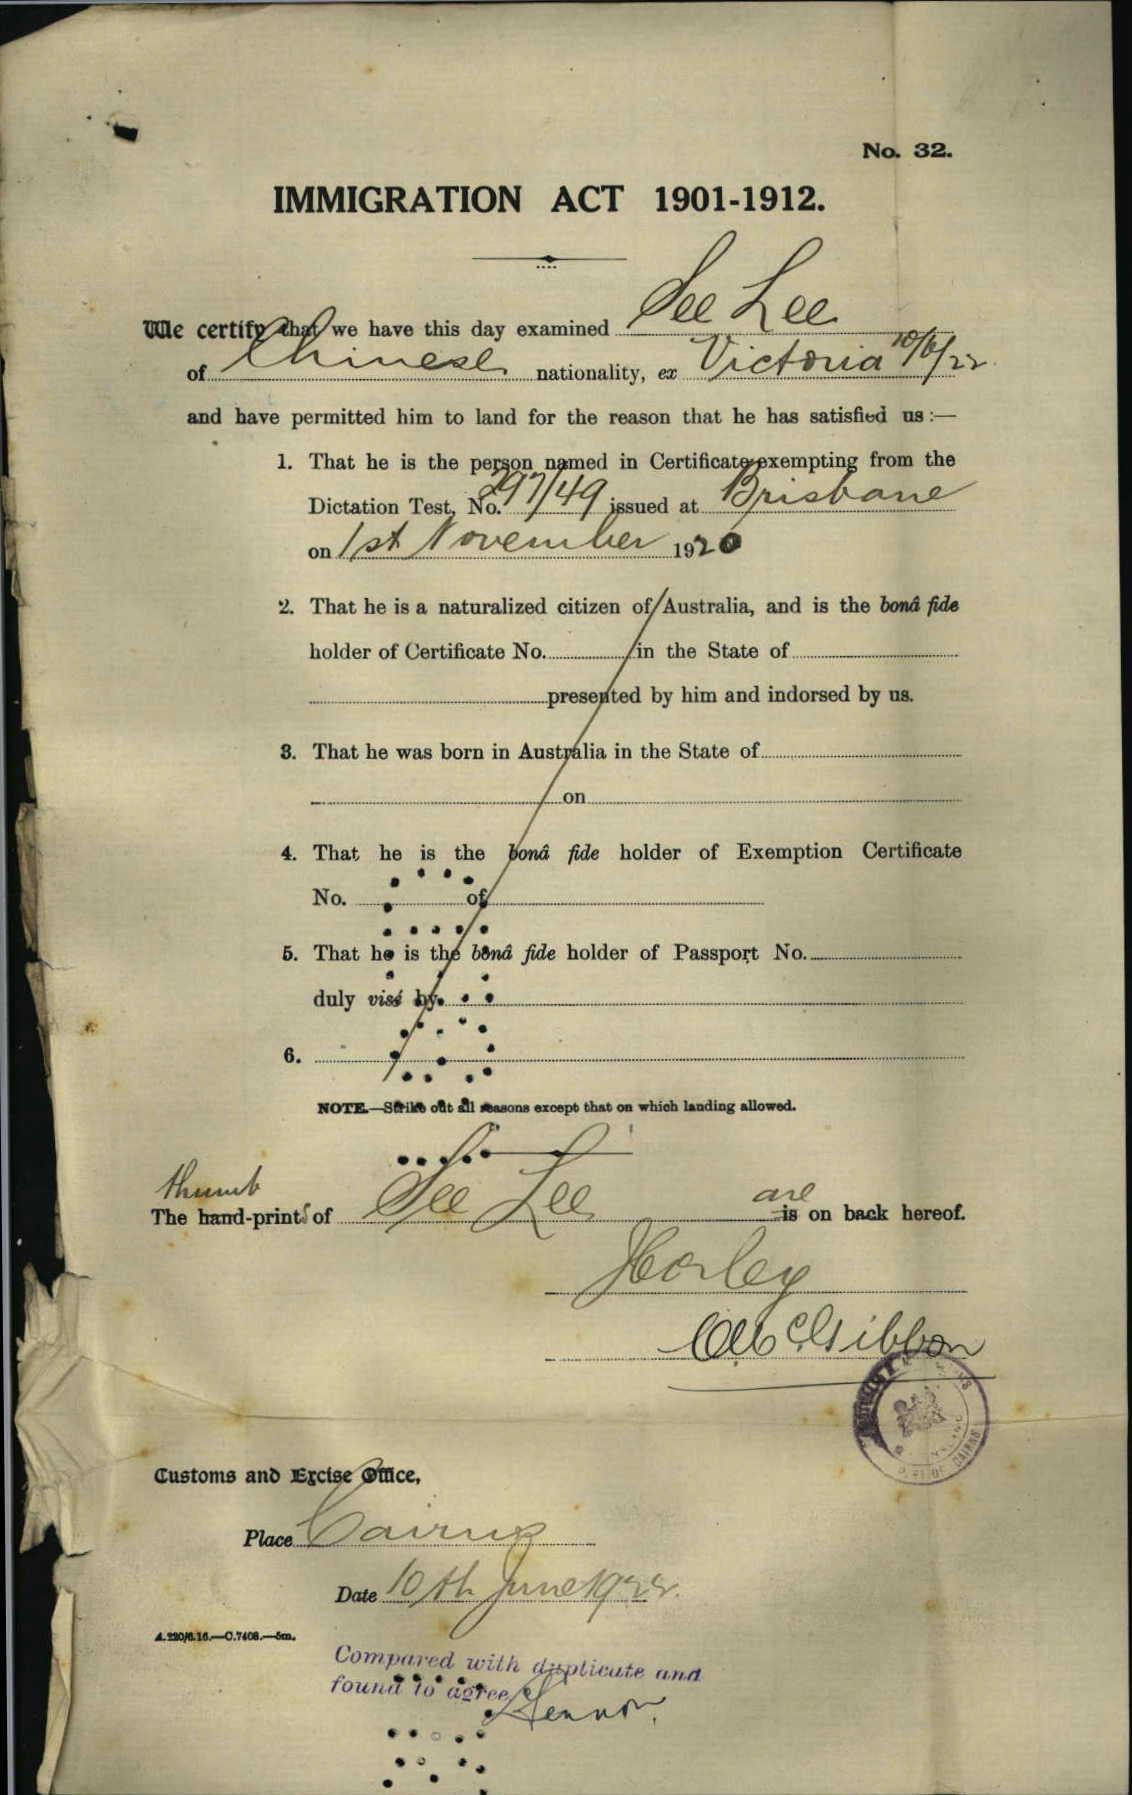 No. 32.
IMMIGRATION ACT 1901-1912.
We certify that we have this day examined See Lee
of Chinese nationality, ex Victoria 10/6/22
and have permitted him to land for the reason that he has satisfied us :—
1. That he is the person named in Certificate exempting from the
Dictation Test, No. 297/49 issued at Brisbane
on 1st November 1920
2. That he is a naturalized citizen of Australia, and is the bonâ fide
holder of Certificate No. in the State of
presented by him and indorsed by us.
3. That he was born in Australia in the State of
on
4. That he is the bonâ fide holder of Exemption Certificate
No. of
5. That he is the bonâ fide holder of Passport No.
duly visé by
6.
NOTE.—Strike out all reasons except that on which landing allowed.
thumb
The hand-prints of See Lee are is on back hereof.
Horley
McGibbon
CAIRNS
Customs and Excise Office,
Place Cairns
Date 10th June 1922.
A.220/6.16.—C.7408.—5m.
Compared with duplicate and
found to agree